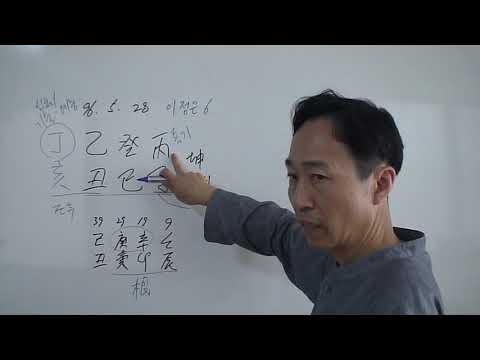 96. 5. 28 이정은 6
丁 乙 癸 丙
亥 丑 巳
坤
39 29 19 9
己 庚 辛 壬
丑 寅 卯 辰
根